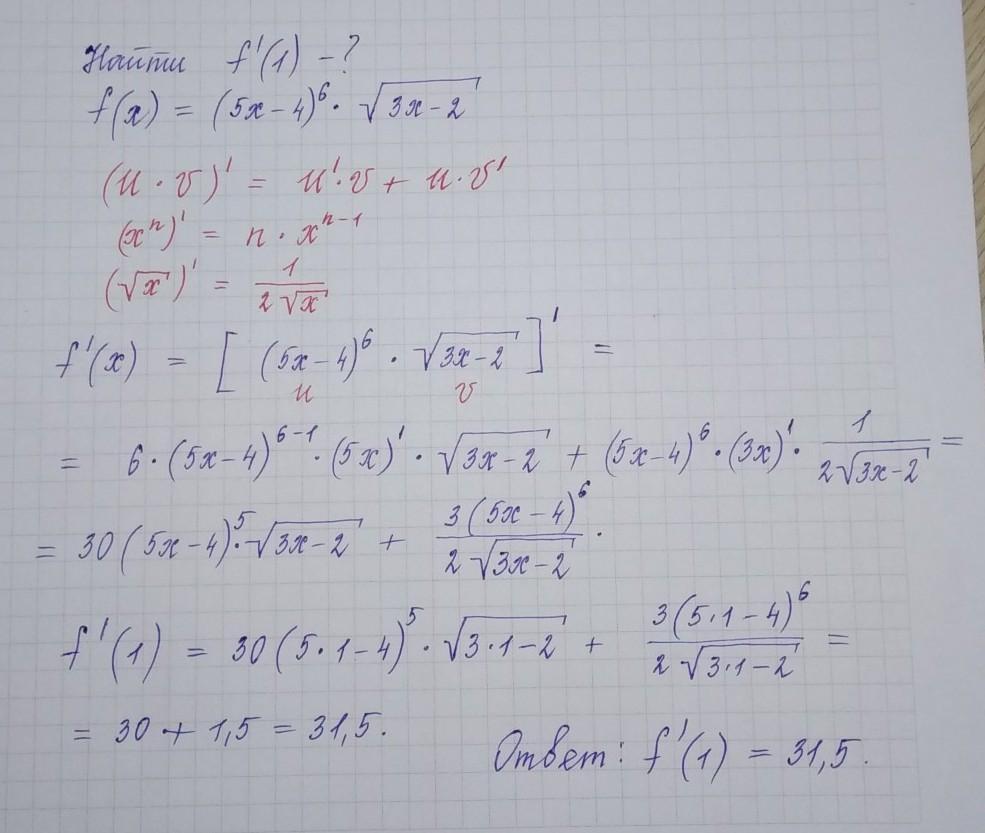 Найти f'(1) - ?
f(x) = (5x-4)⁶ · √(3x-2)
(u · v)' = u'·v + u·v'
(xⁿ)' = n · xⁿ⁻¹
(√x)' = 1/(2√x)
f'(x) = [(5x-4)⁶ · √(3x-2)]' =
u v
= 6·(5x-4)⁶⁻¹·(5x)'·√(3x-2) + (5x-4)⁶·(3x)'·1/(2√(3x-2)) =
= 30(5x-4)⁵·√(3x-2) + 3(5x-4)⁶/(2√(3x-2)).
f'(1) = 30(5·1-4)⁵·√(3·1-2) + 3(5·1-4)⁶/(2√(3·1-2)) =
= 30 + 1,5 = 31,5.
Ответ: f'(1) = 31,5.